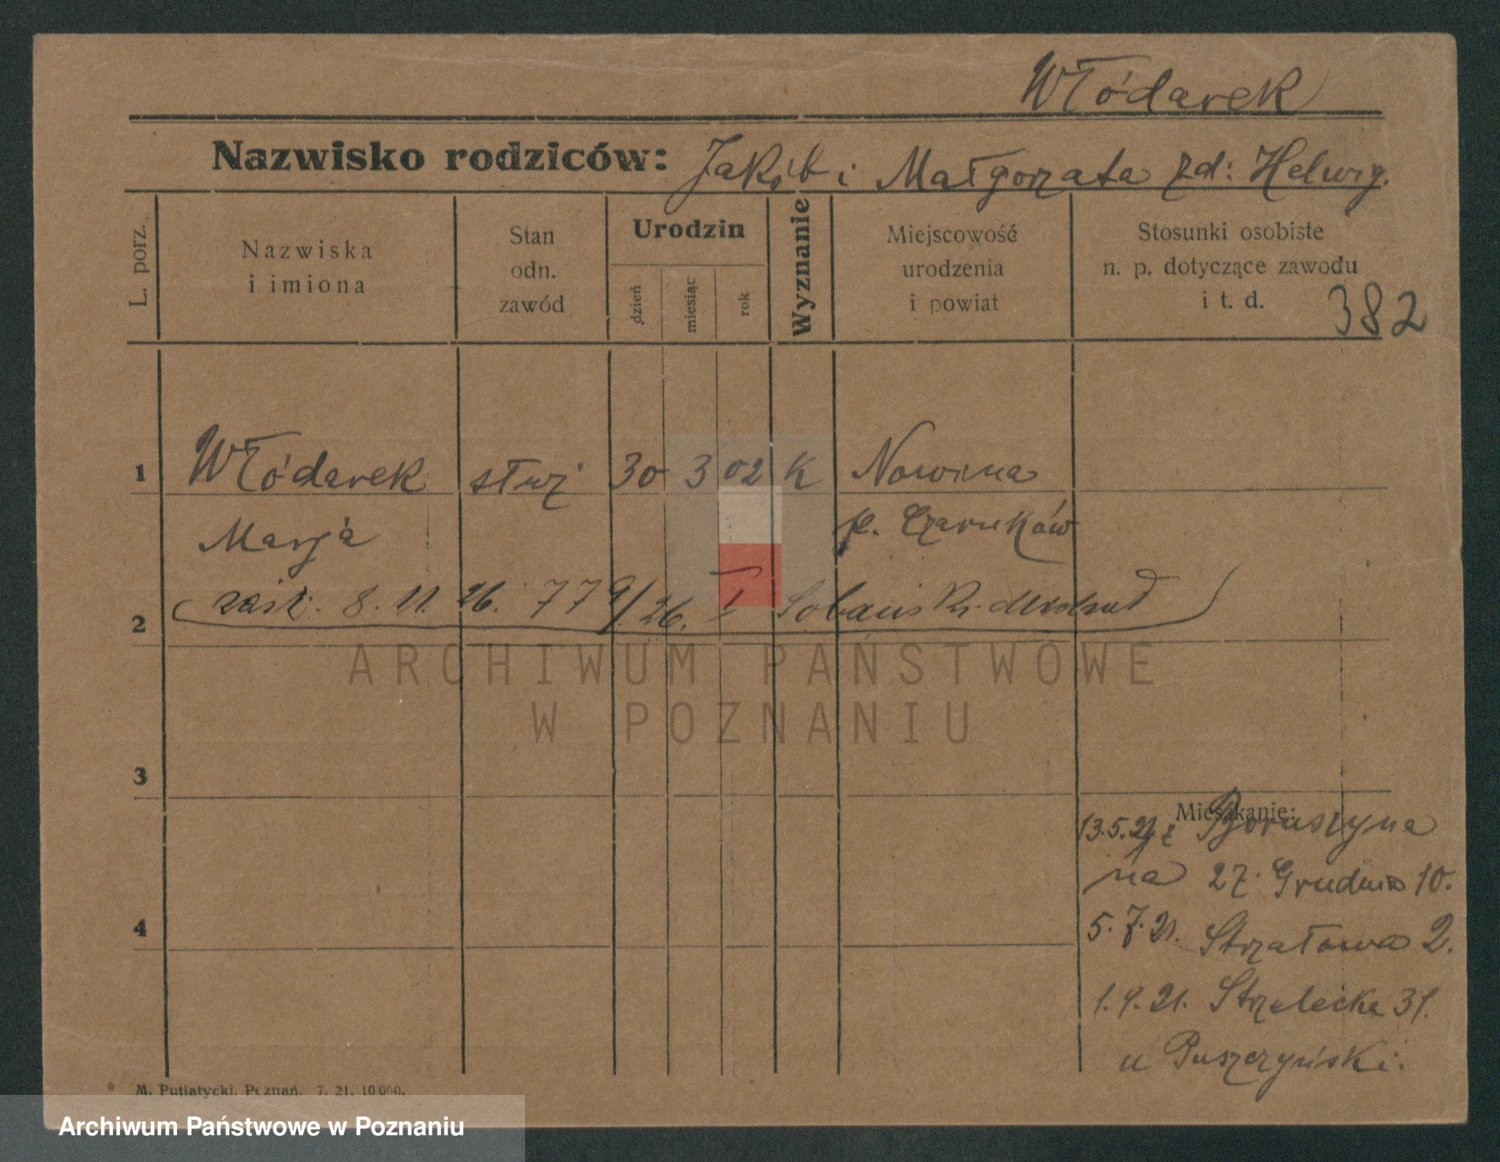 Włódarek
Nazwisko rodziców: Jakób i Małgorzata zd: Helwig.
L. porz.
Nazwiska
i imiona
Stan
odn.
zawód
Urodzin
dzień
miesiąc
rok
Wyznanie
Miejscowość
urodzenia
i powiat
Stosunki osobiste
n. p. dotyczące zawodu
i t. d.
382
1 Włódarek służ 30 3 02 K Nowina
Marja p. Czarnków
2 zaśl. 8. 11. 26. 779/26. I Sobański
3
Mieszkanie:
13.5.21 z Boruszyna
na 27 Grudnia 10.
4 5.7.21. Strzałowa 2.
1.9.21. Strzelecka 31.
u Puszczyński.
M. Putiatycki, Poznań. 7. 21. 10000.
ARCHIWUM PAŃSTWOWE
W POZNANIU
Archiwum Państwowe w Poznaniu